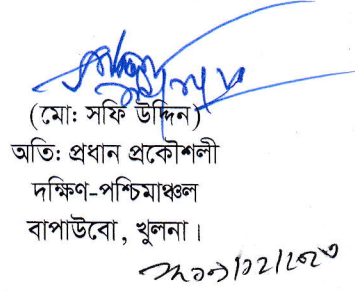 (মো: সফি উদ্দিন)
অতি: প্রধান প্রকৌশলী
দক্ষিণ-পশ্চিমাঞ্চল
বাপাউবো, খুলনা।